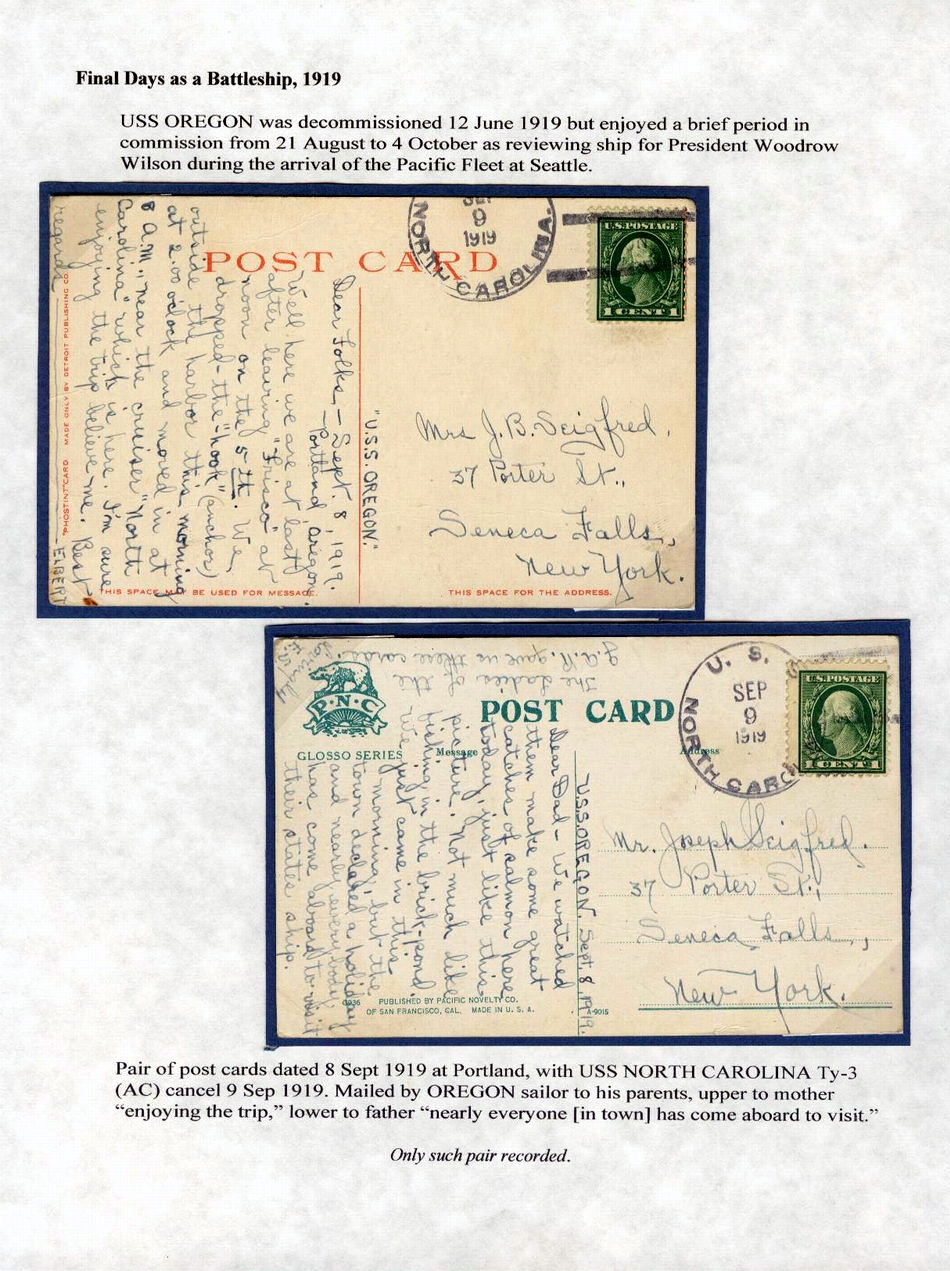 Final Days as a Battleship, 1919
USS OREGON was decommissioned 12 June 1919 but enjoyed a brief period in
commission from 21 August to 4 October as reviewing ship for President Woodrow
Wilson during the arrival of the Pacific Fleet at Seattle.
POST CARD
SEP
9
1919
NORTH CAROLINA.
U.S. POSTAGE
1 CENT 1
"U.S.S. OREGON."
Portland, Oregon.
Sept. 8, 1919.
Dear Folks—
Well here we are at last
after leaving "Frisco" at
noon on the 5th. We
dropped the "hook" (anchor)
outside the harbor this morning
at 2.00 o'clock and moved in at
8 A.M., near the cruiser "North
Carolina" which is here. I'm sure
enjoying the trip believe me. Best
regards
—ELBERT
Mrs J. B. Seigfred,
37 Porter St.,
Seneca Falls,
New York.
"PHOSTINT" CARD MADE ONLY BY DETROIT PUBLISHING CO.
THIS SPACE MAY BE USED FOR MESSAGE.
THIS SPACE FOR THE ADDRESS.
The Ladies of the
G.A.R. gave us these cards.
P·N·C
GLOSSO SERIES
POST CARD
Message
Address
U. S. S.
SEP
9
1919
NORTH CARO
U.S. POSTAGE
1 CENT 1
USS OREGON. Sept. 8, 1919.
Dear Dad— We watched
them make some great
catches of salmon here
today, just like this
picture. Not much like
fishing in the brick-pond.
We just came in this
morning, but the
town declared a holiday
and nearly everybody
has come aboard to visit
their state's ship.
Mr. Joseph Seigfred.
37 Porter St.,
Seneca Falls,
New York.
G936 PUBLISHED BY PACIFIC NOVELTY CO.
OF SAN FRANCISCO, CAL. MADE IN U. S. A.
A-9015
Pair of post cards dated 8 Sept 1919 at Portland, with USS NORTH CAROLINA Ty-3
(AC) cancel 9 Sep 1919. Mailed by OREGON sailor to his parents, upper to mother
“enjoying the trip,” lower to father “nearly everyone [in town] has come aboard to visit.”
Only such pair recorded.